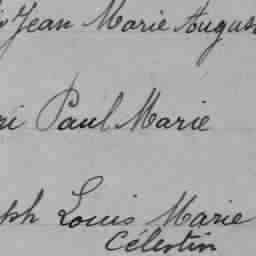 Jean Marie Augus
ri Paul Marie
ph Louis Marie
Célestin